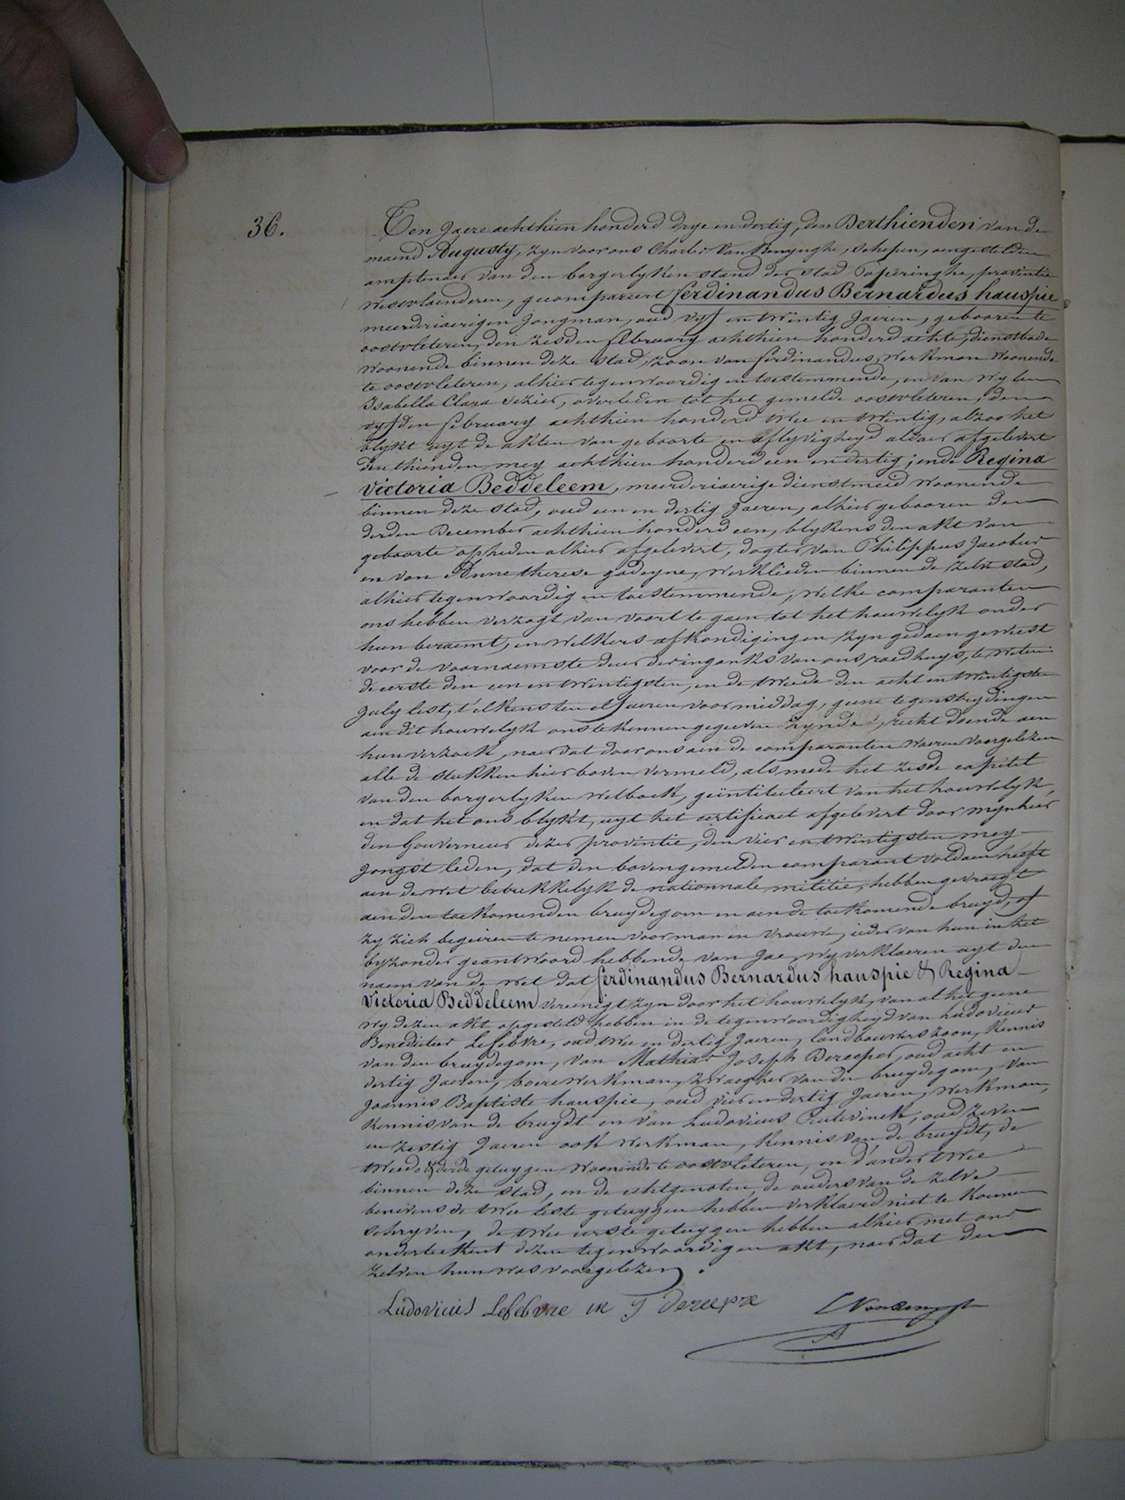 36.
Ten Jaere achthien honderd drye en dertig, den Derthienden van de
maend Augusty, zyn voor ons Charles Van Renynghe, schepen, aengestelden
amptenaer van den borgerlyken stand der stad Poperinghe, provintie
westvlaenderen, gecompareert ferdinandus Bernardus hauspie
meerderjaerigen Jongman, oud vyf en twintig Jaeren, gebooren te
oostvleteren, den zesden february achthien honderd achte, dienstbode
woonende binnen deze stad, zoon van ferdinandus, werkman woonende
te oostvleteren, alhier tegenwoordig en toestemmende, en van wylen
Isabella Clara, overleden tot het gemelde oostvleteren, den
vyfden february achthien honderd twee en twintig, alzoo het
blykt uyt de akten van geboorte en aflyvigheyd aldaer afgelevert
den thienden mey achthien honderd een en dertig; ende Regina
Victoria Beddeleem, meerderjaerige dienstmeid woonende
binnen deze stad, oud een en dertig Jaeren, alhier gebooren den
derden December achthien honderd een, blykens den akt van
geboorte op heden alhier afgelevert, dogter van Philippus Jacobus
en van Anne therese godeyne, werklieden binnen de zelve stad,
alhier tegenwoordig en toestemmende, welke comparanten
ons hebben verzogt van voort te gaen tot het houwelyk onder
hun beraemt, en welkers afkondigingen zyn gedaen geweest
voor de voornaemste deur der ingank van ons raedhuys, te weten
de eerste den een en twintigsten, en de tweede den acht en twintigsten
July lest, t'elkens ten elf uren voormiddag, geene tegenstrydingen
aen dit houwelyk ons te kennen gegeven zynde, recht doende aen
hun verzoek, naer dat door ons aen de comparanten waeren voorgelezen
alle de stukken hier boven vermeld, als mede het zesde capitel
van den borgerlyken wetboek, geïntituleert van het houwelyk,
en dat het ons blykt, uyt het certificaet afgelevert door mynheer
den Gouverneur dezer provintie, den vier en twintigsten mey
Jongst leden, dat den bovengemelden comparant voldaen heeft
aen de wet betrekkelyk de nationnale militie, hebben gevraegt
aen den toekomenden bruydegom en aen de toekomende bruyd, of
zy zich begeiren te nemen voor man en vrouw, ieder van hun in het
byzonder geäntwoord hebbende van Jae, wy verklaeren uyt den
naem van de wet dat ferdinandus Bernardus hauspie & Regina
Victoria Beddeleem vereenigt zyn door het houwelyk, van al het geene
wy dezen akt opgesteld hebben in de tegenwoordigheyd van Ludovicus
Benedictus Lefebvre, oud twee en dertig Jaeren, landbouwerszoon, kennis
van den bruydegom, van Mathias Joseph Dereeper, oud acht en
dertig Jaeren, boere werkman, zwaegher van den bruydegom, van
Joannes Baptiste hauspie, oud vier en dertig Jaeren, werkman,
kennis van de bruydt en van Ludovicus, oud zeven
en zestig Jaeren ook werkman, kennis van de bruydt, de
tweede & derde getuygen woonende te oostvleteren, en d'ander twee
binnen deze stad, en de echtgenoten, de ouders van de zelve
benevens de twee leste getuygen hebben verklaerd niet te konnen
schryven, de twee eerste getuygen hebben alhier met ons
onderteekent dezen tegenwoordigen akt, naer dat den
zelven hun was voorgelezen.
Ludovicus Lefebvre m J dereepre